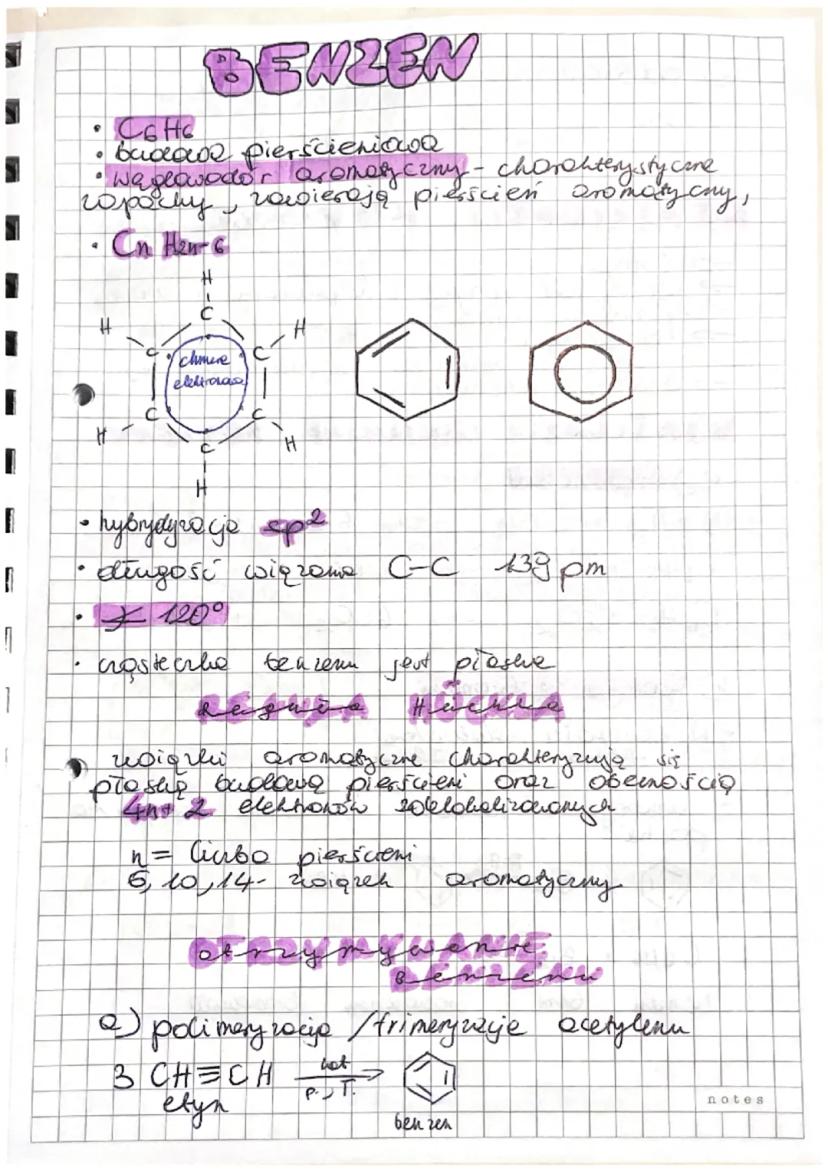 BENZEN
• C6H6
• budowa pierścieniowa
• węglowodór aromatyczny - charakterystyczne
zapachy, zawierają pierścień aromatyczny,
• CnH2n-6
H
H C H
C C
chmura
elektronowa
C C
H C H
H
• hybrydyzacja sp²
• długość wiązania C-C 139 pm
• ∡ 120°
• cząsteczka benzenu jest płaska
REGUŁA HÜCKLA
związki aromatyczne charakteryzują się
płaską budową pierścieni oraz obecnością
4n+2 elektronów zdelokalizowanych
n = liczba pierścieni
6, 10, 14 - związek aromatyczny
OTRZYMYWANIE
BENZENU
a) polimeryzacja / trimeryzacja acetylenu
3 CH≡CH kat
p., T.
etyn
benzen
notes